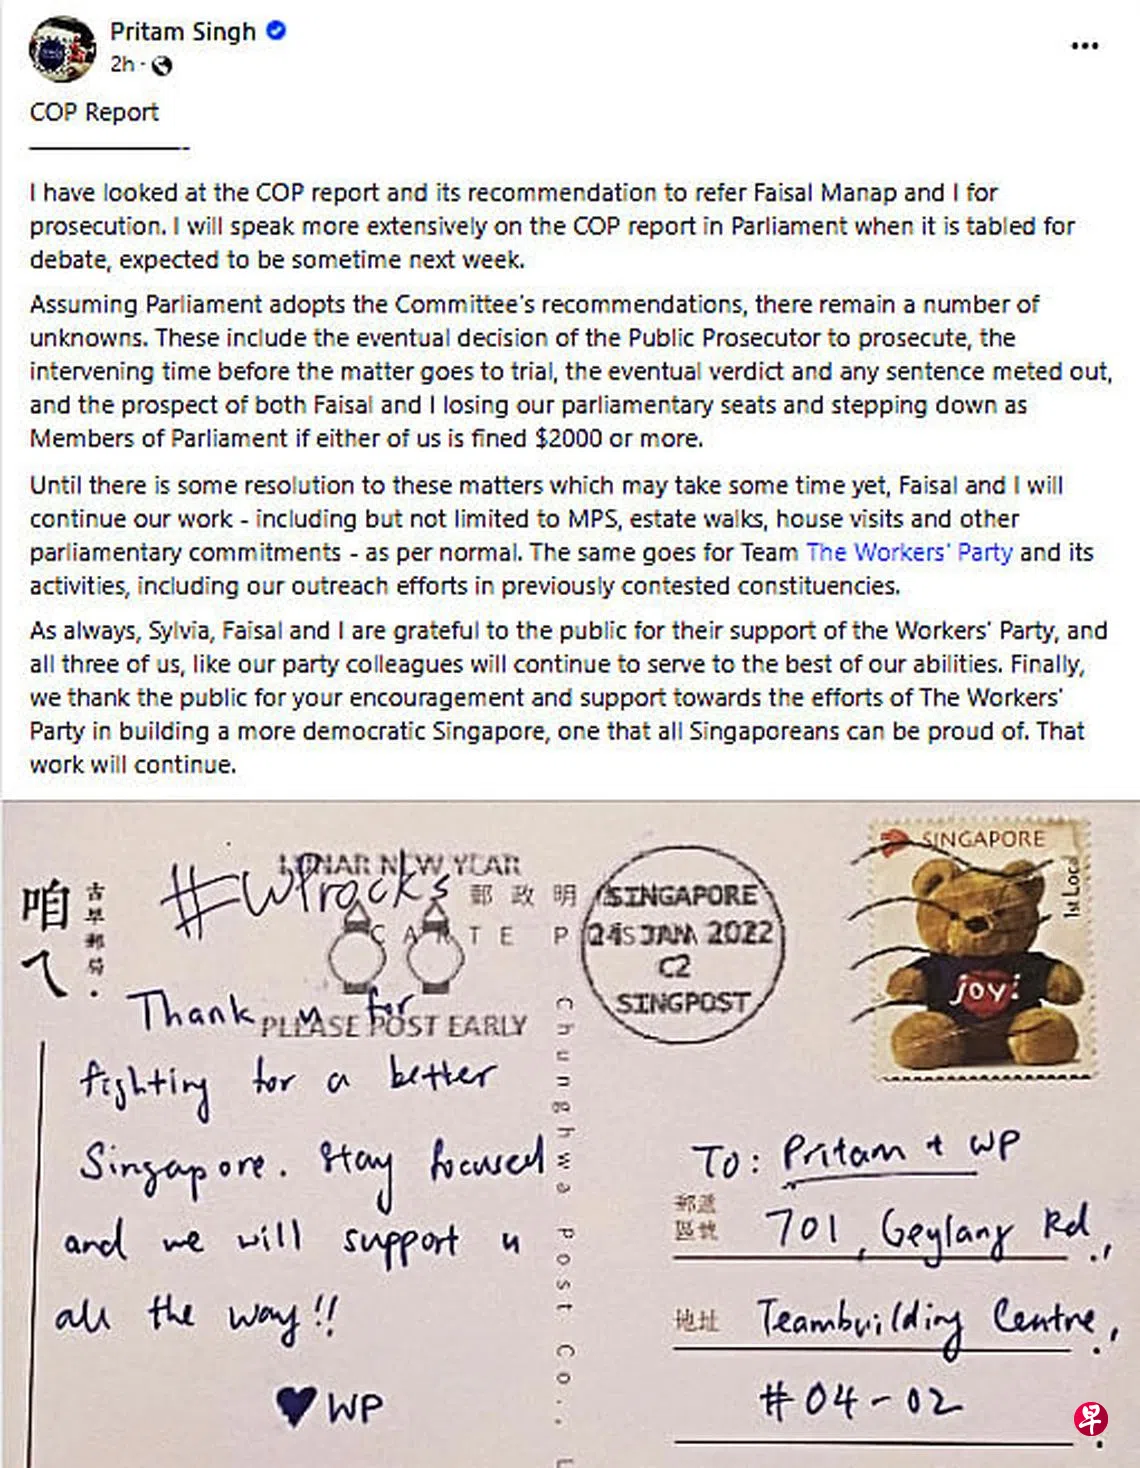 Pritam Singh
2h ·
COP Report
I have looked at the COP report and its recommendation to refer Faisal Manap and I for
prosecution. I will speak more extensively on the COP report in Parliament when it is tabled for
debate, expected to be sometime next week.
Assuming Parliament adopts the Committee's recommendations, there remain a number of
unknowns. These include the eventual decision of the Public Prosecutor to prosecute, the
intervening time before the matter goes to trial, the eventual verdict and any sentence meted out,
and the prospect of both Faisal and I losing our parliamentary seats and stepping down as
Members of Parliament if either of us is fined $2000 or more.
Until there is some resolution to these matters which may take some time yet, Faisal and I will
continue our work - including but not limited to MPS, estate walks, house visits and other
parliamentary commitments - as per normal. The same goes for Team The Workers' Party and its
activities, including our outreach efforts in previously contested constituencies.
As always, Sylvia, Faisal and I are grateful to the public for their support of the Workers' Party, and
all three of us, like our party colleagues will continue to serve to the best of our abilities. Finally,
we thank the public for your encouragement and support towards the efforts of The Workers'
Party in building a more democratic Singapore, one that all Singaporeans can be proud of. That
work will continue.
古早郵局.
#WProcks
LUNAR NEW YEAR
郵政明
CARTE P
PLEASE POST EARLY
SINGAPORE
JAN 2022
C2
SINGPOST
SINGAPORE
1st Local
joy!
Thank u for
fighting for a better
Singapore. Stay focused
and we will support u
all the way!!
♥ WP
Chunghwa Post Co., L
To: Pritam + WP
郵遞
區號
701, Geylang Rd.,
地址
Teambuilding Centre,
#04-02
早